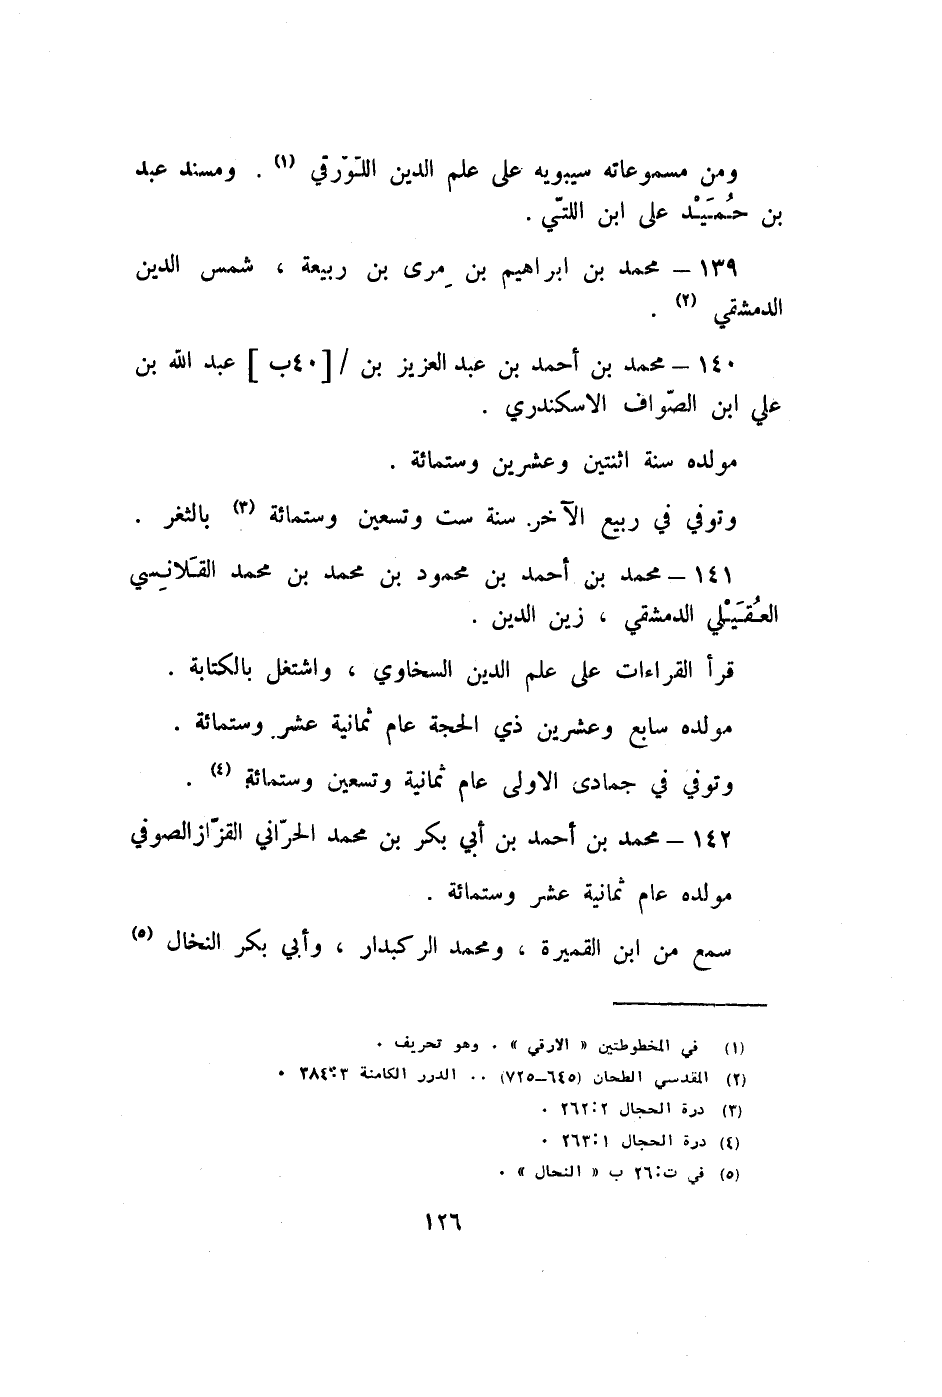 ومن مسموعاته سيبويه على علم الدين اللَّوَرقي (١) . ومسند عبد
بن حُمَيْد على ابن اللتّي .
١٣٩ – محمد بن ابراهيم بن مِرى بن ربيعة ، شمس الدين
الدمشقي (٢) .
١٤٠ – محمد بن أحمد بن عبد العزيز بن / [ ٤٠ب ] عبد الله بن
علي ابن الصّواف الاسكندري .
مولده سنة اثنتين وعشرين وستمائة .
وتوفي في ربيع الآخر سنة ست وتسعين وستمائة (٣) بالثغر .
١٤١ – محمد بن أحمد بن محمود بن محمد بن محمد القَلانِسي
العُقَيْلي الدمشقي ، زين الدين .
قرأ القراءات على علم الدين السخاوي ، واشتغل بالكتابة .
مولده سابع وعشرين ذي الحجة عام ثمانية عشر وستمائة .
وتوفي في جمادى الاولى عام ثمانية وتسعين وستمائة (٤) .
١٤٢ – محمد بن أحمد بن أبي بكر بن محمد الحرّاني القزّاز الصوفي
مولده عام ثمانية عشر وستمائة .
سمع من ابن القميرة ، ومحمد الركبدار ، وأبي بكر النخال (٥)
(١) في المخطوطتين « الارقي » . وهو تحريف .
(٢) المقدسي الطحان (٦٤٥–٧٢٥) .. الدرر الكامنة ٣:٣٨٤ .
(٣) درة الحجال ٢:٢٦٢ .
(٤) درة الحجال ١:٢٦٣ .
(٥) في ت:٢٦ ب « النحال » .
١٢٦